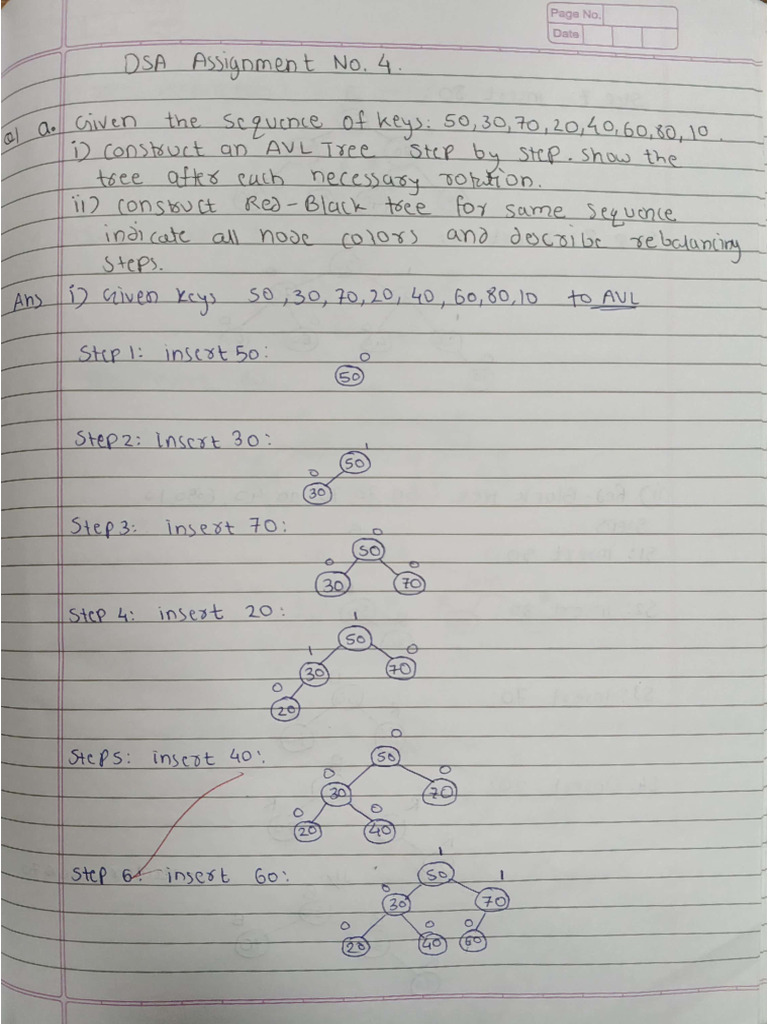 Page No.
Date
DSA Assignment No. 4.
Q1 a. Given the sequence of keys: 50,30,70,20,40,60,80,10.
i) construct an AVL Tree step by step. show the
tree after each necessary rotation.
ii) construct Red-Black tree for same sequence
indicate all node colors and describe rebalancing
steps.
Ans i) Given keys 50,30,70,20,40,60,80,10 to AVL
Step 1: insert 50:
0
50
Step 2: insert 30:
1
50
0
30
Step 3: insert 70:
0
50
0 0
30 70
Step 4: insert 20:
1
50
1 0
30 70
0
20
Step 5: insert 40:
0
50
0 0
30 70
0 0
20 40
Step 6: insert 60:
1
50
0 1
30 70
0 0 0
20 40 60